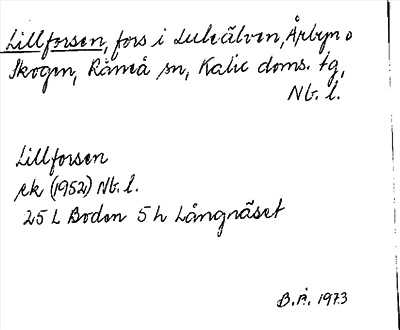 Lillforsen, fors i Luleälven, Årbyn o
Skogen, Råneå sn, Kalix doms. tg,
Nb. l.
Lillforsen
ek (1952) Nb. l.
25 L Boden 5 h Långnäset
B.Å. 1973